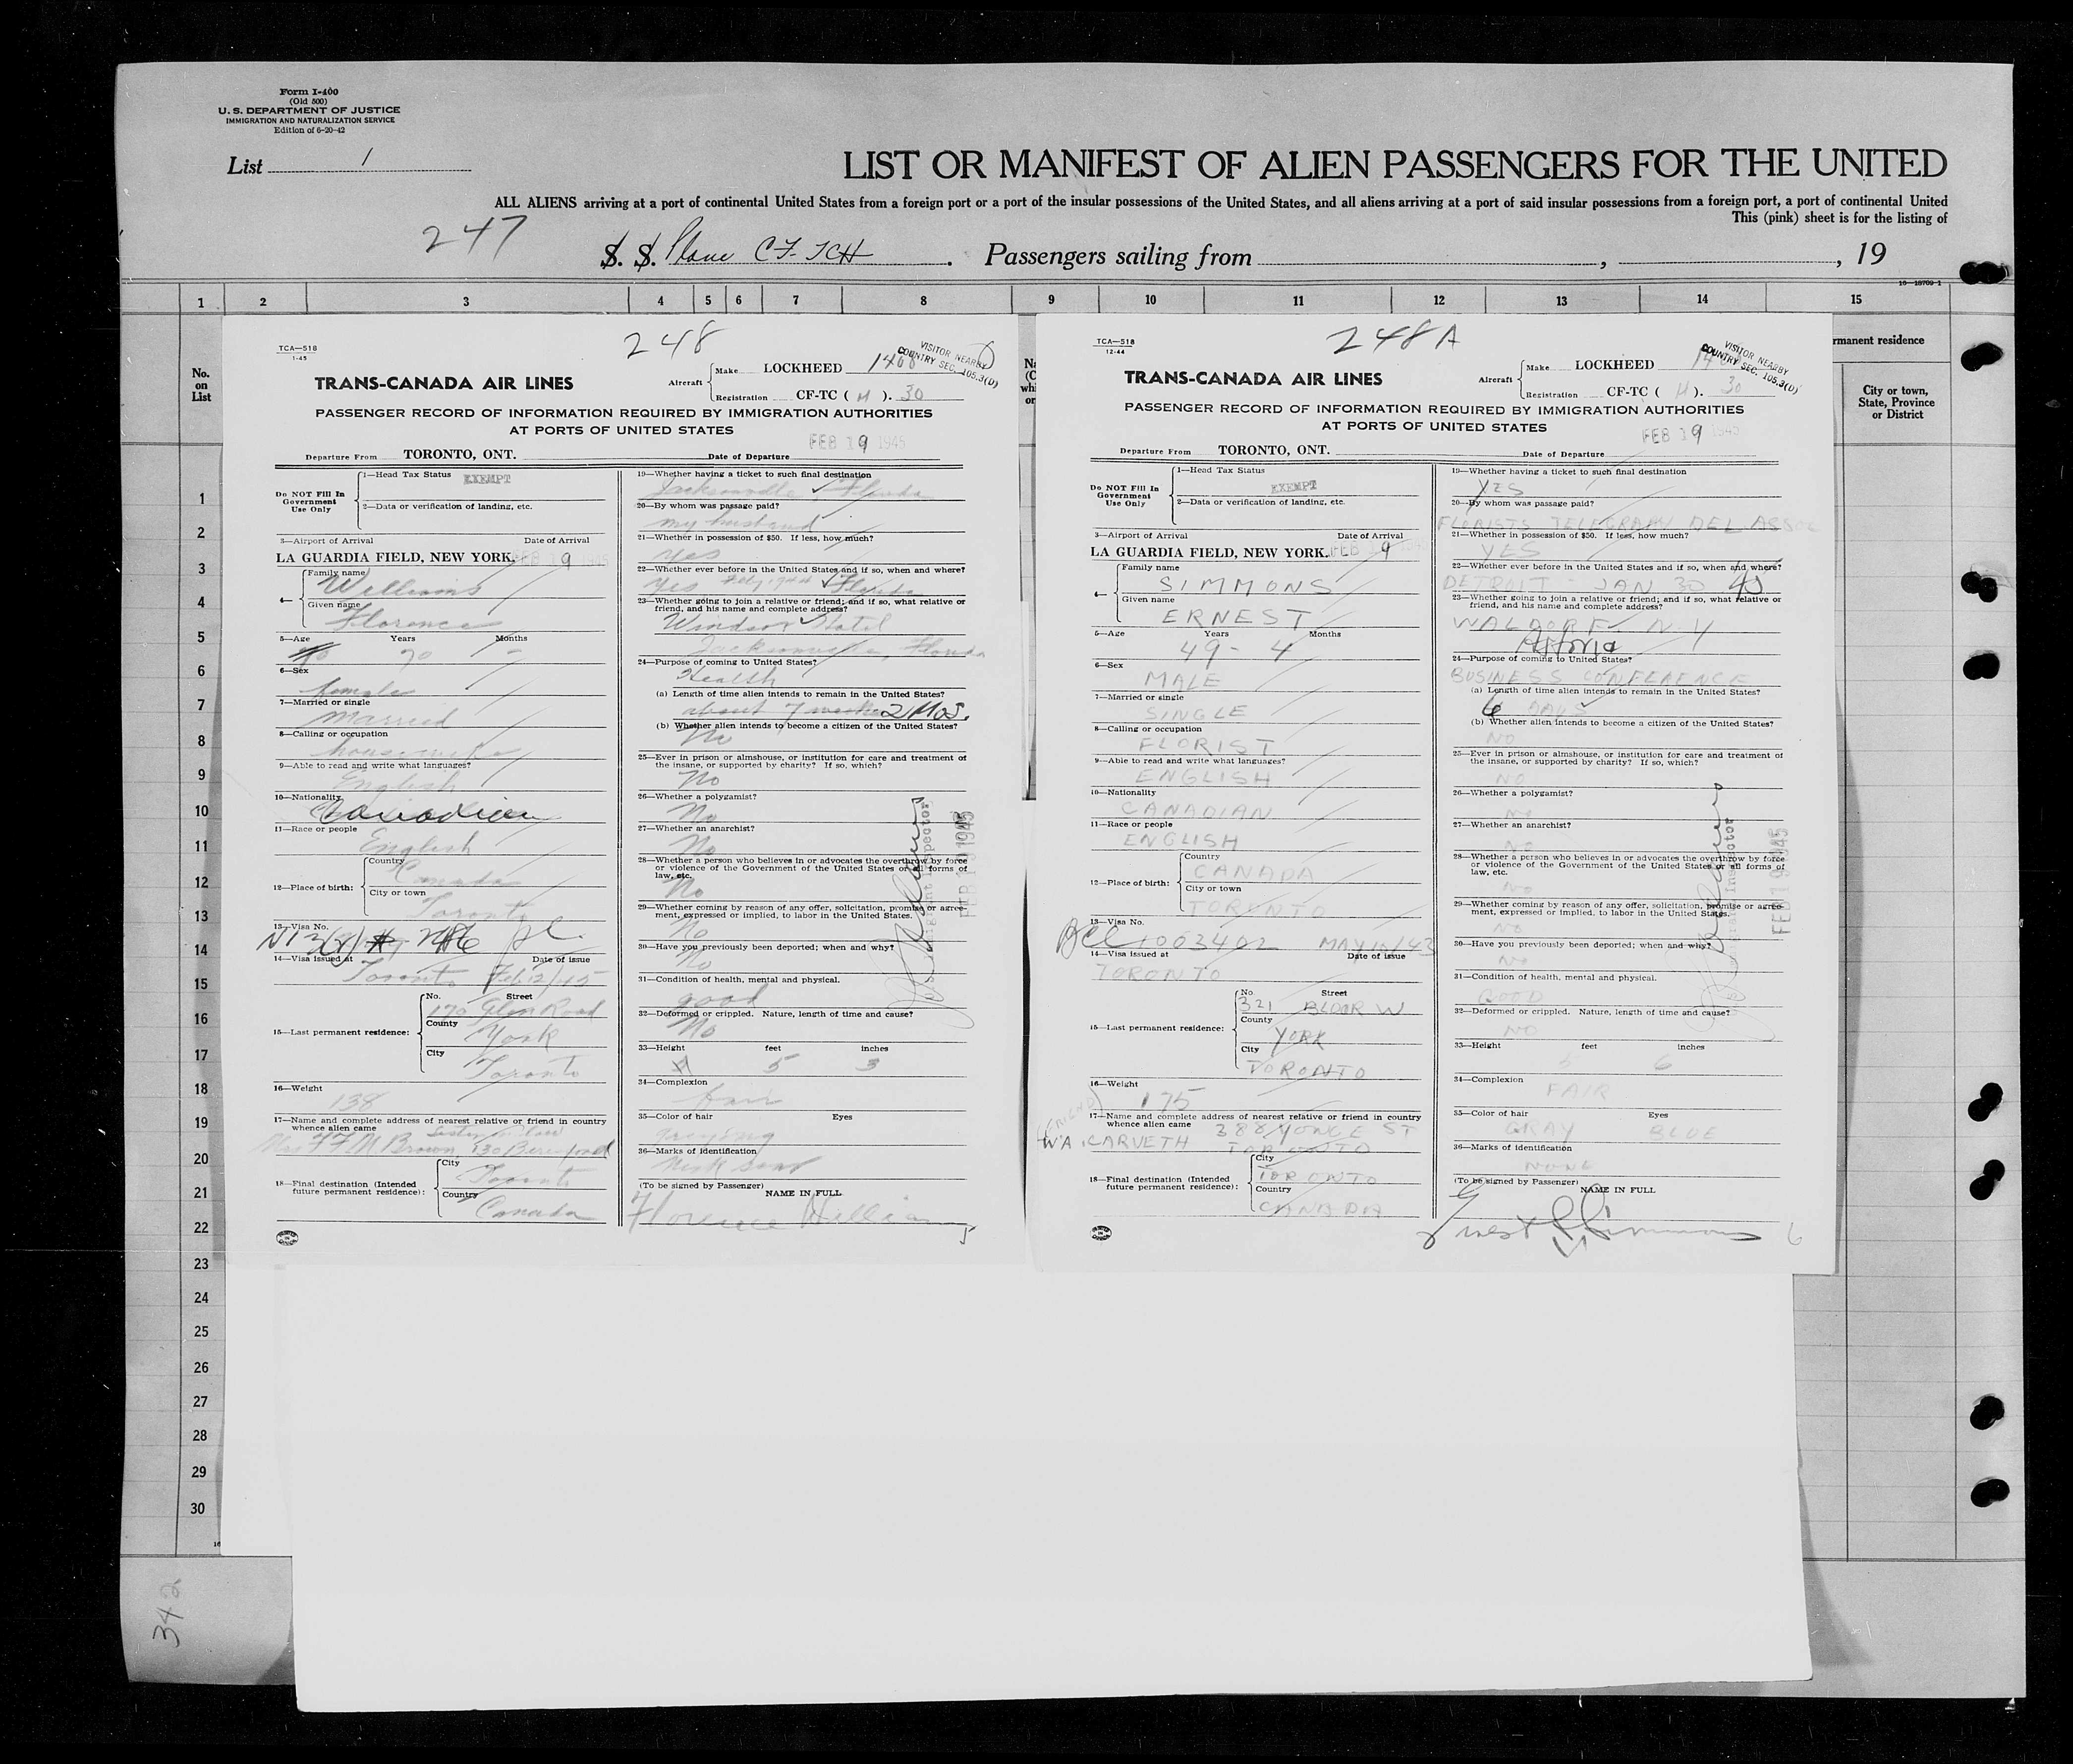 Form I-400
(Old 500)
U. S. DEPARTMENT OF JUSTICE
IMMIGRATION AND NATURALIZATION SERVICE
Edition of 6-20-42
List 1
LIST OR MANIFEST OF ALIEN PASSENGERS FOR THE UNITED
ALL ALIENS arriving at a port of continental United States from a foreign port or a port of the insular possessions of the United States, and all aliens arriving at a port of said insular possessions from a foreign port, a port of continental United
This (pink) sheet is for the listing of
247
S. S. Plane CF-TCH . Passengers sailing from , , 19
16—18709-1
1 2 3 4 5 6 7 8 9 10 11 12 13 14 15
No.
on
List
rmanent residence
City or town,
State, Province
or District
1
2
3
4
5
6
7
8
9
10
11
12
13
14
15
16
17
18
19
20
21
22
23
24
25
26
27
28
29
30
342
248
TCA—518
1-45
VISITOR NEARBY
COUNTRY SEC. 105.3(D)
TRANS-CANADA AIR LINES
Aircraft
Make LOCKHEED 1408
Registration CF-TC ( H ). 30
PASSENGER RECORD OF INFORMATION REQUIRED BY IMMIGRATION AUTHORITIES
AT PORTS OF UNITED STATES
FEB 19 1945
Departure From TORONTO, ONT. Date of Departure
Do NOT Fill In
Government
Use Only
1—Head Tax Status EXEMPT
2—Data or verification of landing, etc.
3—Airport of Arrival Date of Arrival
LA GUARDIA FIELD, NEW YORK. FEB 19 1945
4— Family name Williams
Given name Florence
5—Age Years Months
70 -
6—Sex
female
7—Married or single
Married
8—Calling or occupation
housewife
9—Able to read and write what languages?
English
10—Nationality
Canadian
11—Race or people
English
12—Place of birth: Country
Canada
City or town
Toronto
13—Visa No.
14—Visa issued at Date of issue
Toronto Feb 12/45
15—Last permanent residence: No. Street
170 Glen Road
County
York
City
Toronto
16—Weight
138
17—Name and complete address of nearest relative or friend in country
whence alien came
Brown
18—Final destination (Intended
future permanent residence):
City
Toronto
Country
Canada
19—Whether having a ticket to such final destination
Jacksonville Florida
20—By whom was passage paid?
my husband
21—Whether in possession of $50. If less, how much?
yes
22—Whether ever before in the United States and if so, when and where?
yes Feby 1944 Florida
23—Whether going to join a relative or friend; and if so, what relative or
friend, and his name and complete address?
Windsor Hotel
Jacksonville, Florida
24—Purpose of coming to United States?
Health
(a) Length of time alien intends to remain in the United States?
about 7 weeks 2 Mos.
(b) Whether alien intends to become a citizen of the United States?
No
25—Ever in prison or almshouse, or institution for care and treatment of
the insane, or supported by charity? If so, which?
No
26—Whether a polygamist?
No
27—Whether an anarchist?
No
28—Whether a person who believes in or advocates the overthrow by force
or violence of the Government of the United States or all forms of
law, etc.
No
29—Whether coming by reason of any offer, solicitation, promise or agree-
ment, expressed or implied, to labor in the United States.
No
30—Have you previously been deported; when and why?
No
31—Condition of health, mental and physical.
good
32—Deformed or crippled. Nature, length of time and cause?
No
33—Height feet inches
5 3
34—Complexion
fair
35—Color of hair Eyes
36—Marks of identification
(To be signed by Passenger)
NAME IN FULL
Florence Williams
5
U.S. Immigrant Inspector
FEB 19 1945
248A
TCA—518
12-44
VISITOR NEARBY
COUNTRY SEC. 105.3(D)
TRANS-CANADA AIR LINES
Aircraft
Make LOCKHEED
Registration CF-TC ( H ). 30
PASSENGER RECORD OF INFORMATION REQUIRED BY IMMIGRATION AUTHORITIES
AT PORTS OF UNITED STATES
FEB 19 1945
Departure From TORONTO, ONT. Date of Departure
Do NOT Fill In
Government
Use Only
1—Head Tax Status
EXEMPT
2—Data or verification of landing, etc.
3—Airport of Arrival Date of Arrival
LA GUARDIA FIELD, NEW YORK. FEB 19 1945
4— Family name
SIMMONS
Given name
ERNEST
5—Age Years Months
49 - 4
6—Sex
MALE
7—Married or single
SINGLE
8—Calling or occupation
FLORIST
9—Able to read and write what languages?
ENGLISH
10—Nationality
CANADIAN
11—Race or people
ENGLISH
12—Place of birth: Country
CANADA
City or town
TORONTO
13—Visa No.
BCC 1003402 MAY 10/43
14—Visa issued at Date of issue
TORONTO
15—Last permanent residence: No. Street
321 BLOOR W
County
YORK
City
TORONTO
16—Weight
175
(FRIEND)
17—Name and complete address of nearest relative or friend in country
whence alien came 388 YONGE ST
W.A. CARVETH TORONTO
18—Final destination (Intended
future permanent residence):
City
TORONTO
Country
CANADA
19—Whether having a ticket to such final destination
YES
20—By whom was passage paid?
FLORISTS TELEGRAPH DEL ASSOC
21—Whether in possession of $50. If less, how much?
YES
22—Whether ever before in the United States and if so, when and where?
DETROIT JAN 30 45
23—Whether going to join a relative or friend; and if so, what relative or
friend, and his name and complete address?
WALDORF N.Y
Astoria
24—Purpose of coming to United States?
BUSINESS CONFERENCE
(a) Length of time alien intends to remain in the United States?
6 DAYS
(b) Whether alien intends to become a citizen of the United States?
NO
25—Ever in prison or almshouse, or institution for care and treatment of
the insane, or supported by charity? If so, which?
NO
26—Whether a polygamist?
NO
27—Whether an anarchist?
NO
28—Whether a person who believes in or advocates the overthrow by force
or violence of the Government of the United States or all forms of
law, etc.
NO
29—Whether coming by reason of any offer, solicitation, promise or agree-
ment, expressed or implied, to labor in the United States.
NO
30—Have you previously been deported; when and why?
NO
31—Condition of health, mental and physical.
GOOD
32—Deformed or crippled. Nature, length of time and cause?
NO
33—Height feet inches
5 6
34—Complexion
FAIR
35—Color of hair Eyes
GRAY BLUE
36—Marks of identification
NONE
(To be signed by Passenger)
NAME IN FULL
Ernest S Simmons
6
Immigrant Inspector
FEB 19 1945